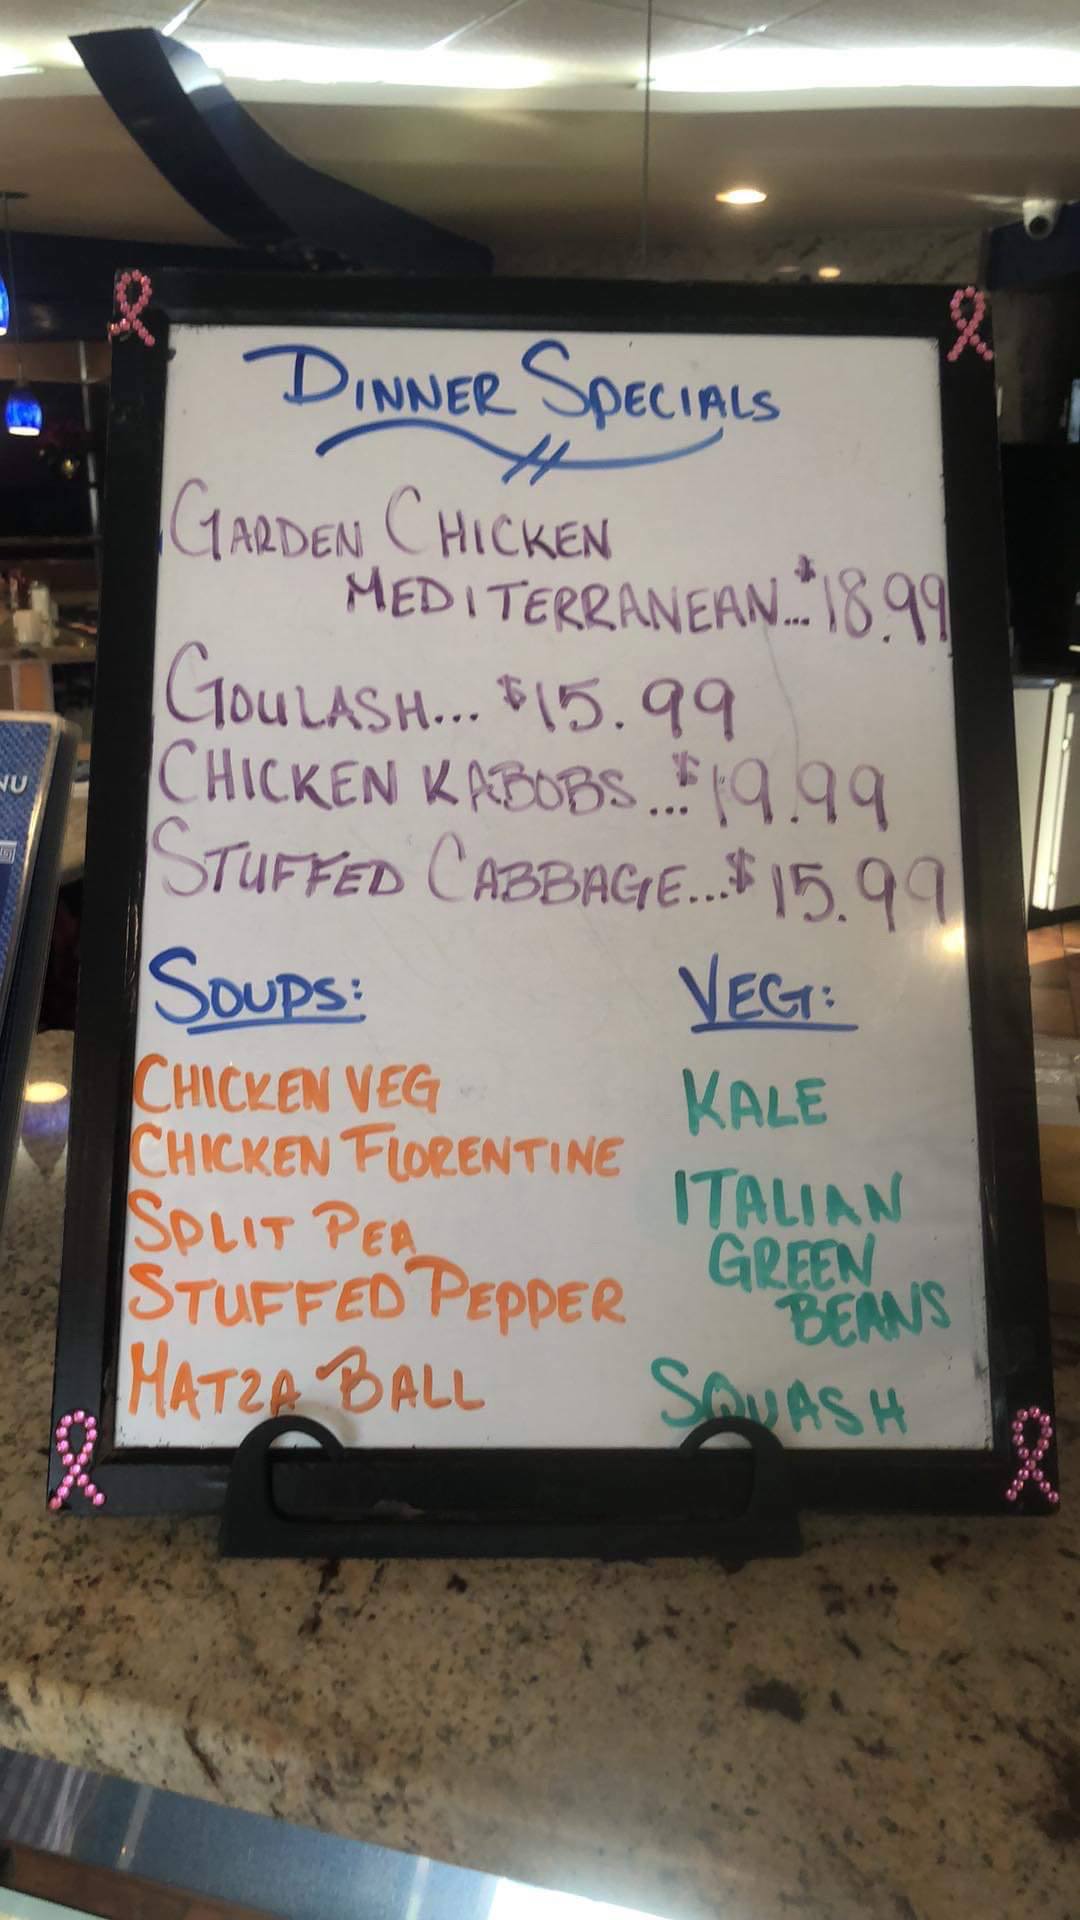 DINNER SPECIALS
GARDEN CHICKEN
MEDITERRANEAN...$18.99
GOULASH... $15.99
CHICKEN KABOBS...$19.99
STUFFED CABBAGE...$15.99
SOUPS:
CHICKEN VEG
CHICKEN FLORENTINE
SPLIT PEA
STUFFED PEPPER
MATZA BALL
VEG:
KALE
ITALIAN
GREEN
BEANS
SQUASH
NU